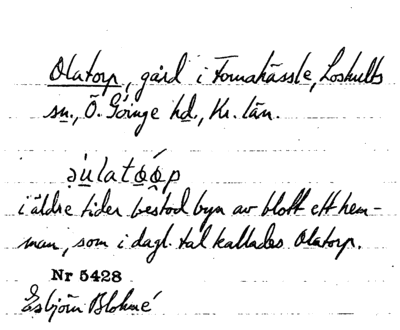 Olatorp, gård i Tomahässle, Loshults
sn., Ö. Göinge hd., Kr. län.
ùlatǫǫ́p
i äldre tider bestod byn av blott ett hem-
man, som i dagl. tal kallades Olatorp.
Nr 5428
Esbjörn Blohmé